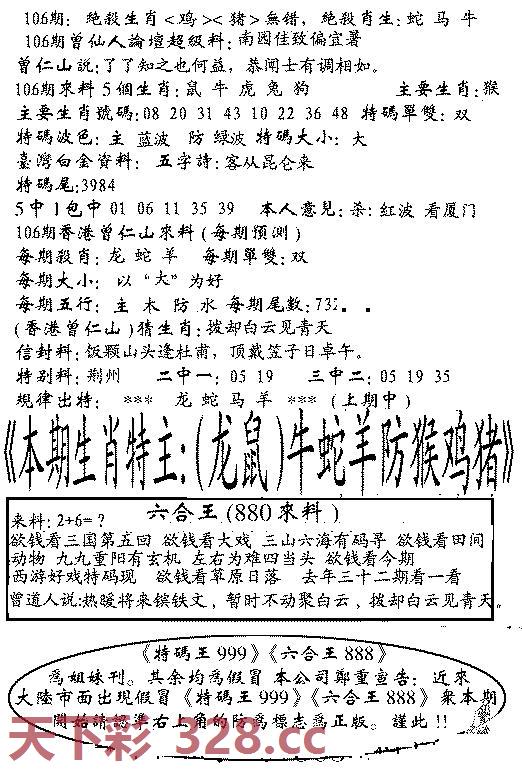 106期: 絶殺生肖<鸡><猪>無錯, 絶殺肖生: 蛇 马 牛
106期曾仙人論壇超級料: 南园佳致偏宜署
曾仁山説: 了了知之也何益, 恭闻士有调相如。
106期來料5個生肖: 鼠 牛 虎 兔 狗 主要生肖: 猴
主要生肖號碼: 08 20 31 43 10 22 36 48 特碼單雙: 双
特碼波色: 主 蓝波 防 绿波 特碼大小: 大
臺灣白金資料: 五字詩: 客从昆仑来
特碼尾:3984
5中1包中 01 06 11 35 39 本人意見: 杀: 红波 看厦门
106期香港曾仁山來料(每期預測)
每期殺肖: 龙 蛇 羊 每期單雙: 双
每期大小: 以“大”为好
每期五行: 主 木 防 水 每期尾數: 732
(香港曾仁山)猜生肖: 拨却白云见青天
信封料: 饭颗山头逢杜甫, 顶戴笠子日卓午。
特别料: 荆州 二中一: 05 19 三中二: 05 19 35
規律出特: *** 龙 蛇 马 羊 *** (上期中)
《本期生肖特主:(龙鼠)牛蛇羊防猴鸡猪》
六合王(880來料)
来料: 2+6=?
欲钱看三国第五回 欲钱看大戏 三山六海有码寻 欲钱看田间
动物 九九重阳有玄机 左右为难四当头 欲钱看今期
西游好戏特码现 欲钱看草原日落 去年三十二期看一看
曾道人说: 热暖将来镔铁文, 暂时不动聚白云, 拨却白云见青天。
《特碼王999》《六合王888》
爲姐妹刊。其余均爲假冒 本公司鄭重宣告: 近來
大陸市面出現假冒《特碼王999》《六合王888》衆本期
開始請認準右上角的防爲標志爲正版。謹此!!
天下彩 328.cc